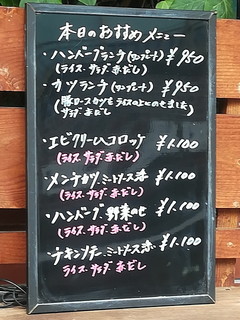 本日のおすすめメニュー
・ハンバーグランチ(ワンプレート) ¥950
(ライス・サラダ・赤だし)
・カツランチ(ワンプレート) ¥950
(豚ロースカツをライスの上にのせました
サラダ・赤だし)
・エビクリームコロッケ ¥1.100
(ライス・サラダ・赤だし)
・メンチカツ ミートソース添 ¥1.100
(ライス・サラダ・赤だし)
・ハンバーグ ¥1.100
(ライス・サラダ・赤だし)
・チキンソテー ミートソース添 ¥1.100
ライス・サラダ・赤だし